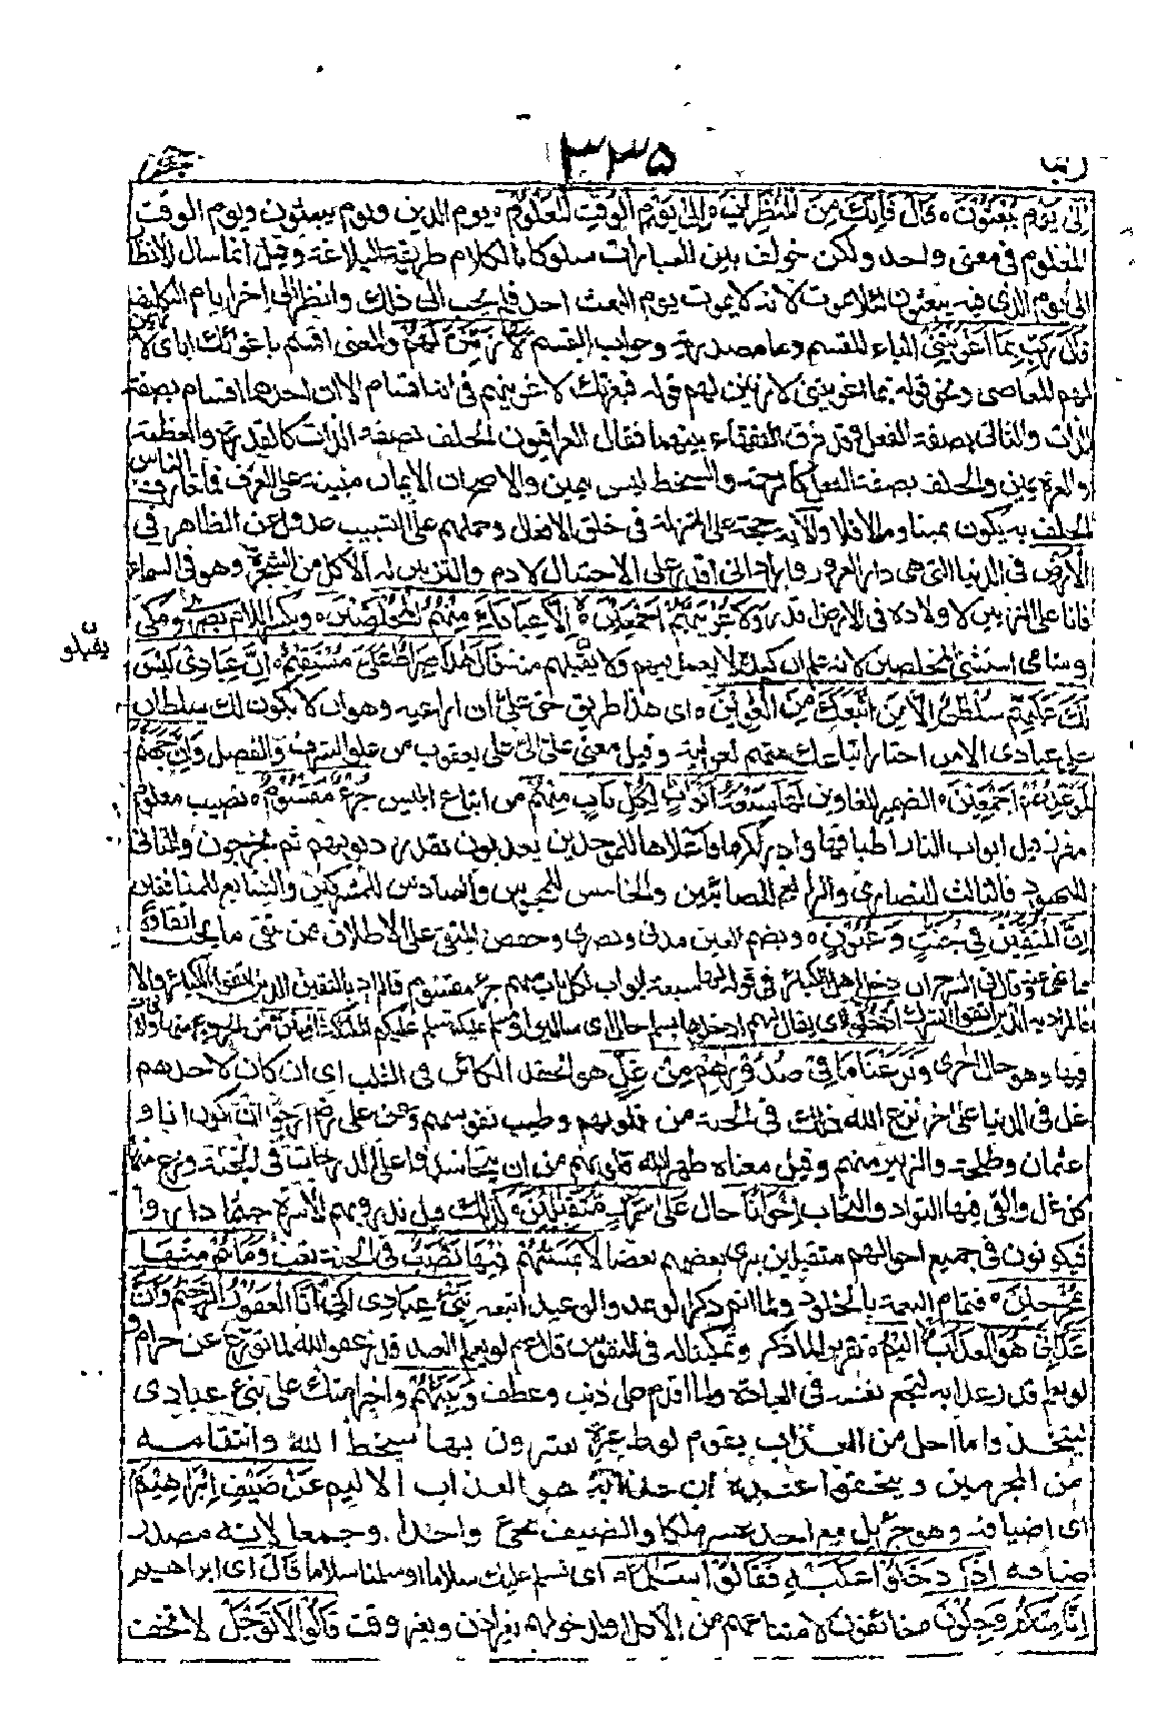 ربما
٣٣٥
الحجر
إِلَى يَوْمِ يُبْعَثُونَ ه قَالَ فَإِنَّكَ مِنَ الْمُنْظَرِينَ ه إِلَى يَوْمِ الْوَقْتِ الْمَعْلُومِ ه يوم الدين ويوم يبعثون ويوم الوقت
المعلوم في معنى واحد ولكن خولف بين العبارات سلوكا بالكلام طريقة البلاغة وقيل انما سال الانظا
الى اليوم الذى فيه يبعثون لئلا يموت لانه لا يموت يوم البعث احد فلم يجب الى ذلك وانظر الى اخر ايام التكليف
قَالَ رَبِّ بِمَا أَغْوَيْتَنِي الباء للقسم وما مصدرية وجواب القسم لَأُزَيِّنَنَّ لَهُمْ والمعنى اقسم باغوائك اياى لا زينن
لهم المعاصى ونحو قوله بما اغويتنى لازينن لهم قوله فبعزتك لاغوينهم فى انه اقسام الا ان احدهما اقسام بصفة
الذات والثانى بصفة الفعل وقد فرق الفقهاء بينهما فقال العراقيون الحلف بصفة الذات كالقدرة والعظمة
والعزة يمين والحلف بصفة الفعل كالرحمة والسخط ليس بيمين والاصح ان الايمان مبنية على العرف فما تعارف الناس
الحلف به يكون يمينا وما لا فلا والاية حجة على المعتزلة فى خلق الافعال وحملهم على التسبيب عدول عن الظاهر فِي
الْأَرْضِ فى الدنيا التى هى دار الغرور واراد انى اقدر على الاحتيال لادم والتزيين له الاكل من الشجرة وهو فى السماء
فانا على التزيين لاولاده فى الارض اقدر وَلَأُغْوِيَنَّهُمْ أَجْمَعِينَ ه إِلَّا عِبَادَكَ مِنْهُمُ الْمُخْلَصِينَ ه وبكسر اللام بصرى ومكى
وشامى استثنى المخلصين لانه علم ان كيده لا يعمل فيهم ولا يقبلو منه قَالَ هَذَا صِرَاطٌ عَلَيَّ مُسْتَقِيمٌ ه إِنَّ عِبَادِي لَيْسَ
يقبلو ن
لَكَ عَلَيْهِمْ سُلْطَانٌ إِلَّا مَنِ اتَّبَعَكَ مِنَ الْغَاوِينَ ه اى هذا طريق حق على ان اراعيه وهو ان لا يكون لك سلطان
على عبادى الا من اختار اتباعك منهم لغوايته وقيل معنى على الى على يعقوب من علو الشرف والفضل وَإِنَّ جَهَنَّمَ
لَمَوْعِدُهُمْ أَجْمَعِينَ ه الضمير للغاوين لَهَا سَبْعَةُ أَبْوَابٍ لِكُلِّ بَابٍ مِنْهُمْ من اتباع ابليس جُزْءٌ مَقْسُومٌ ه نصيب معلوم
مفرز قيل ابواب النار اطباقها وادراكها فاعلاها للموحدين يعذبون بقدر ذنوبهم ثم يخرجون والثانى
لليهود والثالث للنصارى والرابع للصابئين والخامس للمجوس والسادس للمشركين والسابع للمنافقين
إِنَّ الْمُتَّقِينَ فِي جَنَّاتٍ وَعُيُونٍ ه وبضم العين مدنى وبصرى وحفص المتقى على الاطلاق من يتقى ما يجب اتقاؤه
مما نهى عنه وقال فى الشرح ان دخل اهل الكبائر فى قوله لها سبعة ابواب لكل باب منهم جزء مقسوم فالمراد بالمتقين الذين اتقوا الكبائر والا
فالمراد به الذين اتقوا الشرك ادْخُلُوهَا اى يقال لهم ادخلوها بِسَلَامٍ حال اى سالمين او مسلما عليكم تسلم عليكم الملائكة آمِنِينَ من الخروج منها والافات
فيها وهو حال اخرى وَنَزَعْنَا مَا فِي صُدُورِهِمْ مِنْ غِلٍّ هو الحقد الكامن فى القلب اى ان كان لاحدهم
غل فى الدنيا على اخر نزع الله ذلك فى الجنة من قلوبهم وطيب نفوسهم وعن على رض ارجو ان اكون انا و
عثمان وطلحة والزبير منهم وقيل معناه طهر الله قلوبهم من ان يتحاسدوا على الدرجات فى الجنة ونزع منها
كل غل والقى فيها التواد والتحاب إِخْوَانًا حال عَلَى سُرُرٍ مُتَقَابِلِينَ ه كذلك قيل تدور بهم الاسرة حيثما داروا
فيكونون فى جميع احوالهم متقابلين يرى بعضهم بعضا لَا يَمَسُّهُمْ فِيهَا نَصَبٌ فى الجنة تعب وَمَا هُمْ مِنْهَا
بِمُخْرَجِينَ ه فتمام النعمة بالخلود ولما اتم ذكر الوعد والوعيد اتبعه نَبِّئْ عِبَادِي أَنِّي أَنَا الْغَفُورُ الرَّحِيمُ وَأَنَّ
عَذَابِي هُوَ الْعَذَابُ الْأَلِيمُ ه تقريرا لما ذكر وتمكينا له فى النفوس قال عم لو يعلم العبد قدر عفو الله لما تورع عن حرام و
لو يعلم قدر عذابه لبخع نفسه فى العبادة ولما اقدم على ذنب وعطف وَنَبِّئْهُمْ واخبر امتك على نبئ عبادى
ليتخذوا ما احل من العذاب بقوم لوط عبرة يعتبرون بها سخط الله وانتقامه
من المجرمين ويتحققوا عنده ان عذابه هو العذاب الاليم عَنْ ضَيْفِ إِبْرَاهِيمَ
اى اضيافه وهو جبرئيل مع احد عشر ملكا والضيف يجئ واحدا وجمعا لانه مصدر
ضافه إِذْ دَخَلُوا عَلَيْهِ فَقَالُوا سَلَامًا ه اى نسلم عليك سلاما او سلمنا سلاما قَالَ اى ابراهيم
إِنَّا مِنْكُمْ وَجِلُونَ خائفون ه لامتناعهم من الاكل او لدخولهم بغير اذن وبغير وقت قَالُوا لَا تَوْجَلْ لا تخف